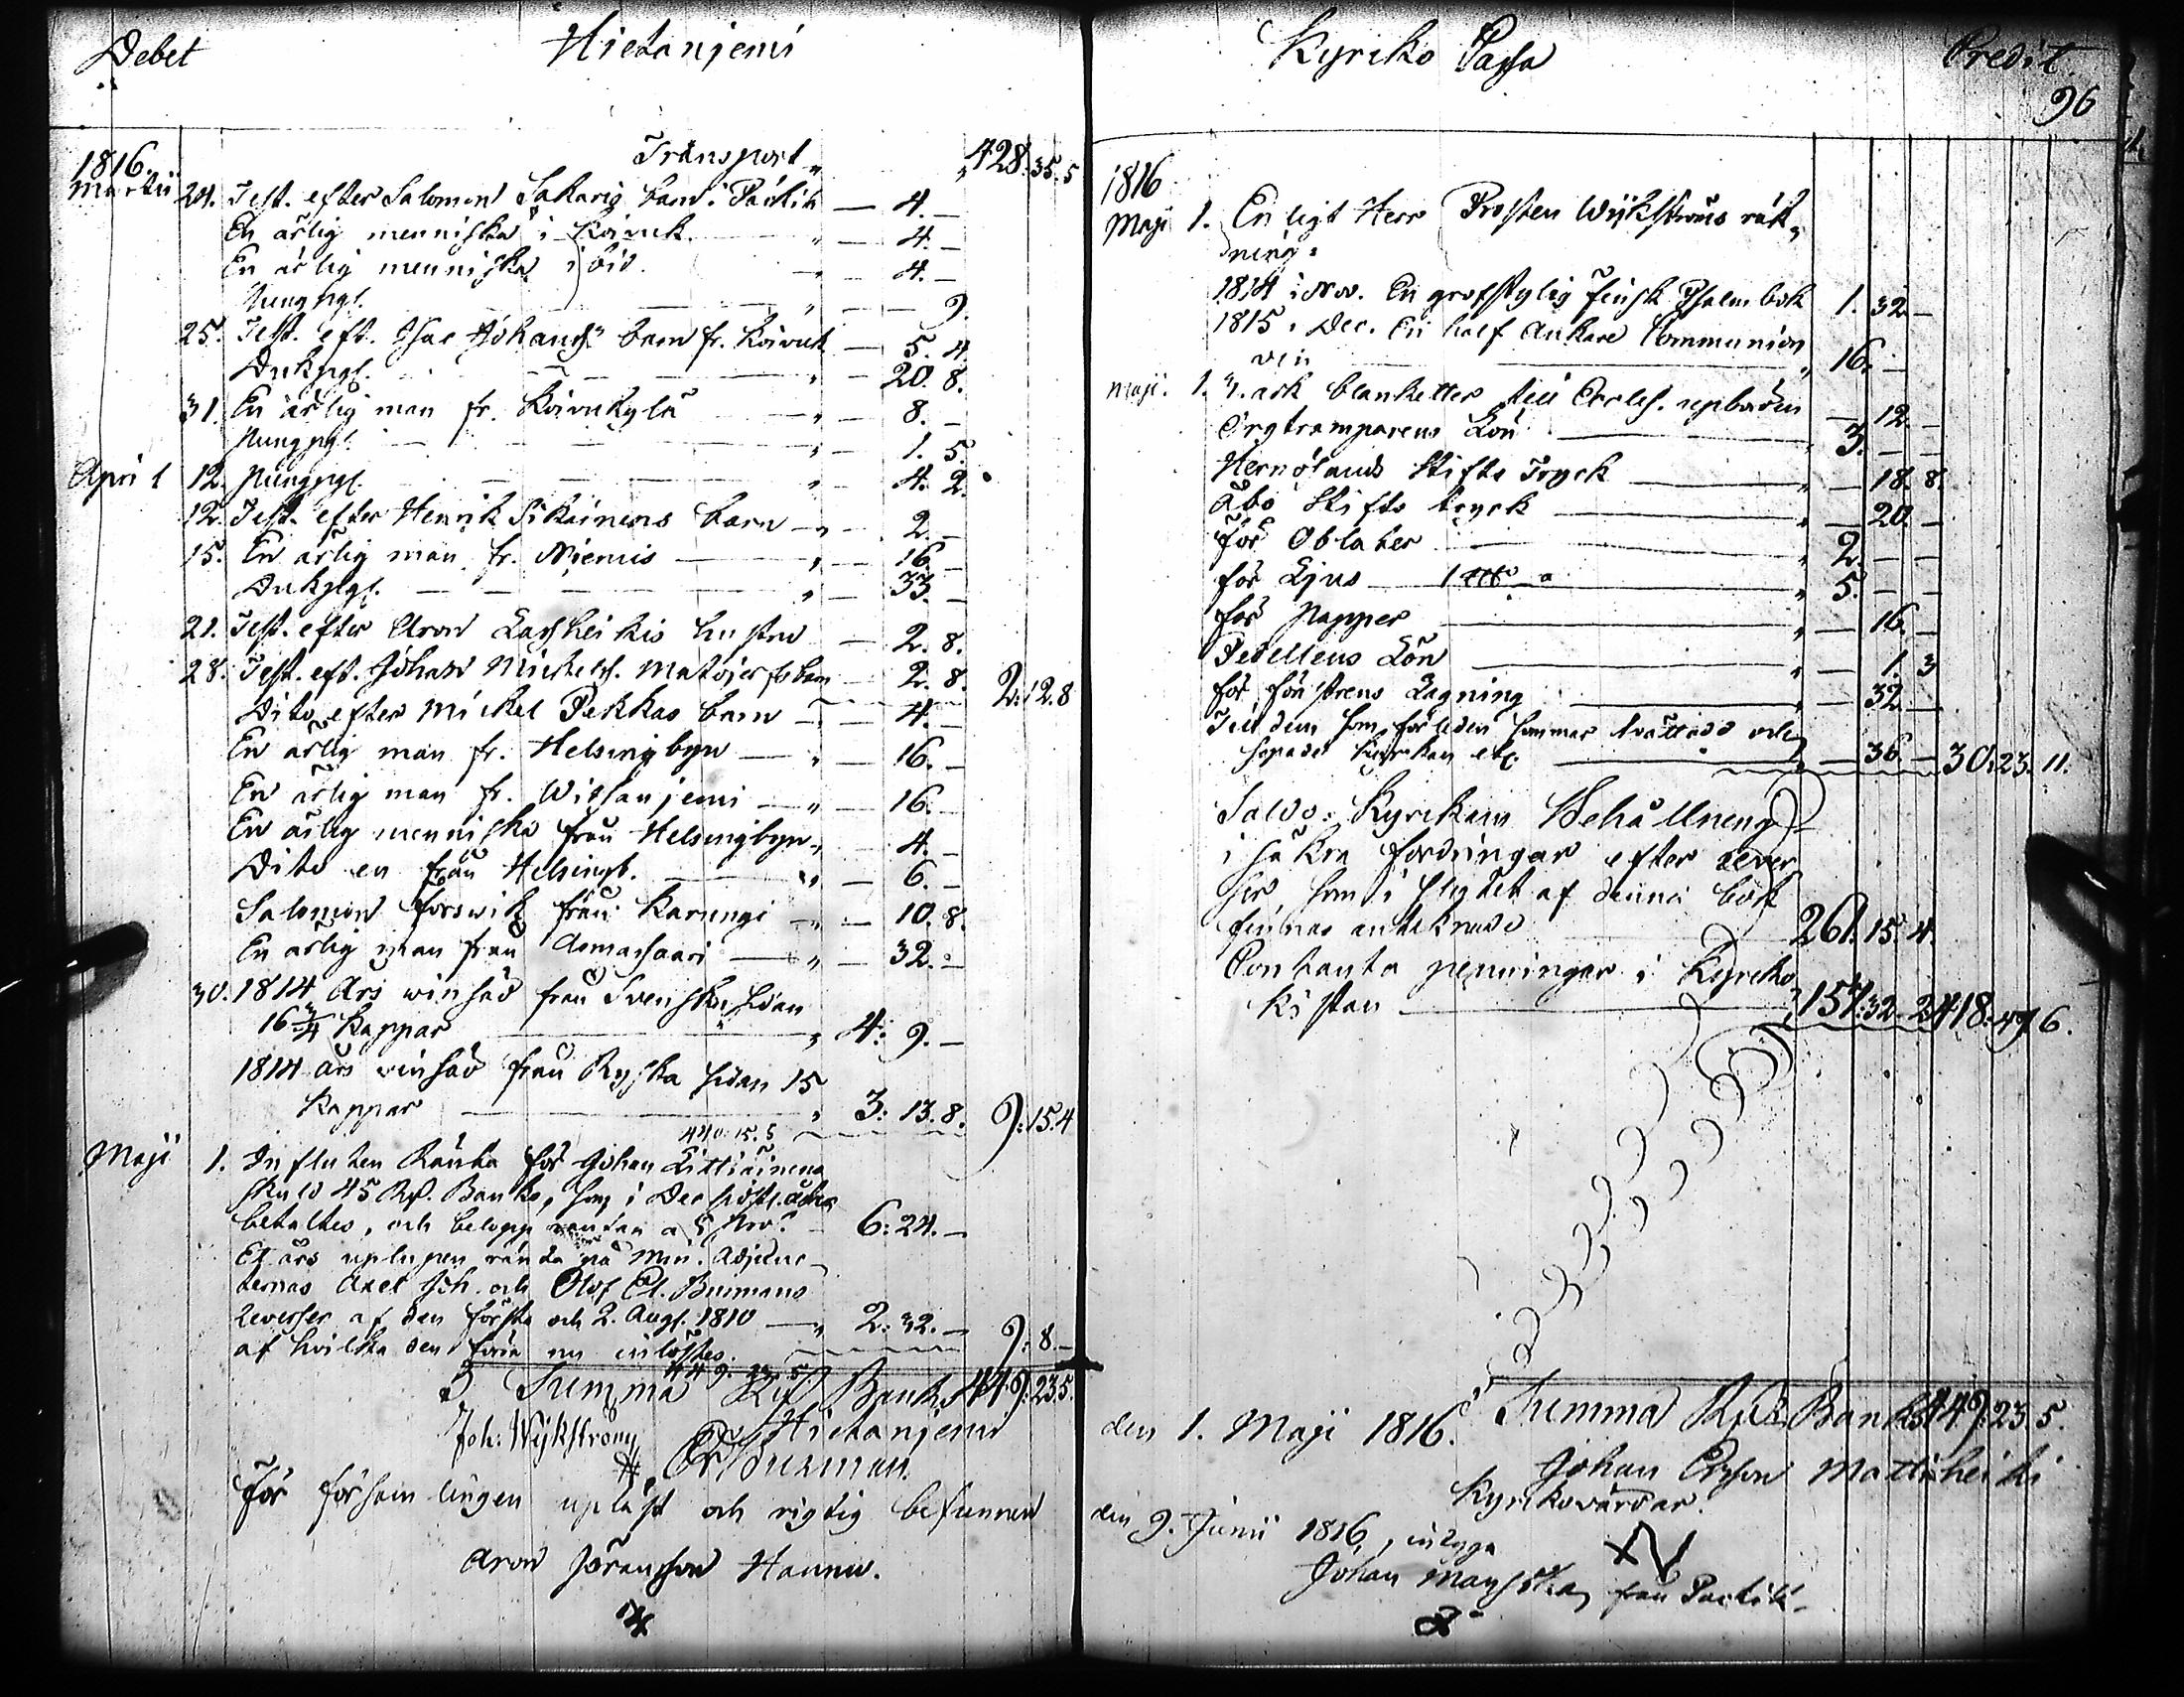 Debet Hietanjemi
Transport " 428. 35. 5
1816.
Martii 24. Test. efter Salomon Sakaris barn i Päckilä — 4. —
En ärlig menniska i Koivuk. " — 4. —
En ärlig menniska ibid. " — 4. —
Pungpgr. " — — 9.
25. Test. eft. Isac Johanss: barn fr. Koivuk. — 5. 4.
Dukpgr. " — 20. 8.
31. En ärlig man fr. Koivukylä " — 8. —
Pungpgr. " — 1. 5.
April 12. Pungpgr. " — 4. 2.
12. Test. efter Henrik Sikainens barn " — 2. —
15. En ärlig man fr. Niemis " — 16. —
Dukpgr. " — 33. —
21. Test. efter Aron Lassheikis hustru — 2. 8.
28. Test. eft. Johan Mickelss. barn — 2. 8. 2: 12. 8
Dito efter Mickel Pekkas barn — 4. —
En ärlig man fr. Helsingbyn " — 16. —
En ärlig man fr. Witsanjemi " — 16. —
En ärlig menniska från Helsingbyn " — 4. —
Dito en från Helsingb. " — 6. —
Salomon Forswik från Karungi " — 10. 8.
En ärlig man från Armassaari " — 32. —
30. 1814 Års winsäd från Svenska sidan
16 3/4 Kappar " 4: 9. —
1814 års vinsäd från Ryska sidan 15
Kappar " 3: 13. 8. 9: 15. 4
440. 15. 5
Maji 1. Influten Ränta för Johan
skuld 45 R. Banko, som i Dec.
betaltes, och belopp räntan a 5 Pro C.
Ett års uplupen ränta på Min. Adjunc-
ternas Axel Joh. och Olof Burmans
reverser af den första och 2. Aug. 1810 " 2: 32. — 9: 8. —
af hvilka den förra nu inlöstes.
449. 23. 5
Summa Rd Banko 449: 23. 5.
Joh: Wykström Hietanjemi
Burman
För församlingen upläst och rigtig befunnen
Aron Jöransson Hannu.
Kyrko Cassa Credit
96
1816
Maji 1. Enligt Herr Prosten Wykströms räk-
ning:
1814 i Nov. En grofstylig finsk Psalmbok 1. 32. —
1815 i Dec. En half Ankare Communion
vin " 16. — —
Maji. 1. ark blanketter till Eccles. upbörden — 12. —
Orgtramparens Lön 3. — —
Hernösands Stifts Tryck " — 18. 8.
Åbo Stifts tryck " — 20. —
För Oblater " 2. — —
för Ljus " 5. — —
för Papper " — 16. —
Pedellens Lön " — 1. 3
för fönstrens Lagning " — 32. —
Till dem som förleden sommar tvättade och
sopade kyrkan etc. " — 36 — 30: 23. 11.
Saldo: Kyrkans Behållning
i säkra fordringar efter rever
ser, som i slutet af denna bok
finnas antecknade 261. 15. 4.
Contanta penningar i Kyrko
kistan 157: 32. 2 418: 47. 6.
den 1. Maji 1816. Summa Rd Banko 449: 23. 5.
Johan Ersson Mattsheiki
Kyrkovärdar.
den 9. Junii 1816, intyga
Johan från Päckilä